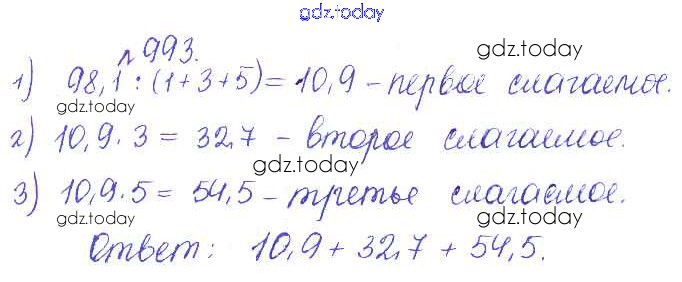 gdz.today
№ 993.
gdz.today
1) 98,1 : (1+3+5) = 10,9 - первое слагаемое.
gdz.today
2) 10,9 · 3 = 32,7 - второе слагаемое.
gdz.today
3) 10,9 · 5 = 54,5 - третье слагаемое.
gdz.today
gdz.today
Ответ: 10,9 + 32,7 + 54,5.